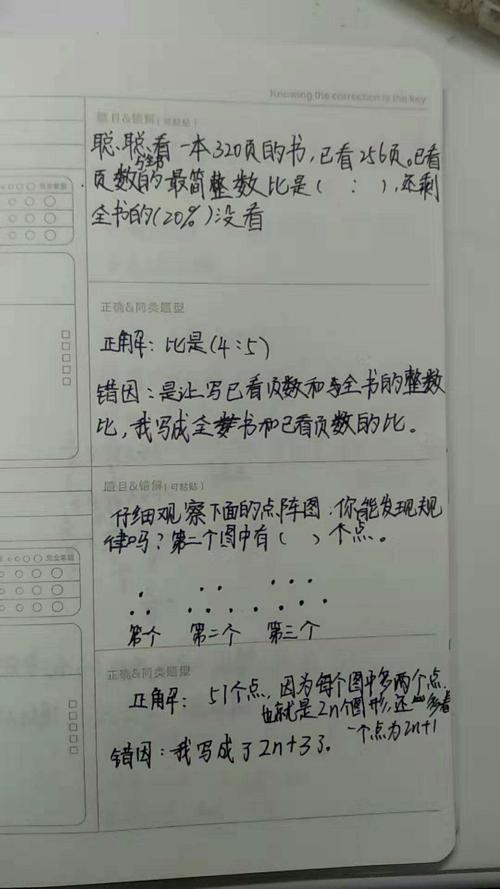 Knowing the correction is the key
题目&错解(可粘贴)
聪聪看一本320页的书,已看256页。已看
页数与全书的最简整数比是( : ),还剩
全书的(20%)没看
正确&同类题型
正解:比是(4:5)
错因:是让写已看页数和与全书的整数
比,我写成全书和已看页数的比。
题目&错解(可粘贴)
仔细观察下面的点阵图:你能发现规
律吗?第二个图中有( )个点。
第一个 第二个 第三个
正确&同类题型
正解: 51个点,因为每个图中多两个点
也就是2n个图形,还一多着
一个点为2n+1
错因:我写成了2n+3了。
完全掌握
完全掌握